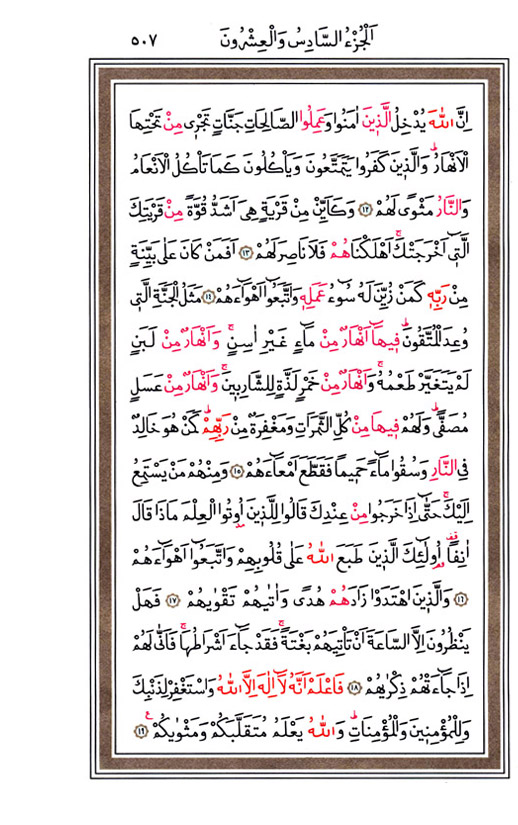 اَلْجُزْءُ السَّادِسُ وَالْعِشْرُونَ ٥٠٧
اِنَّ اللّٰهَ يُدْخِلُ الَّذٖينَ اٰمَنُوا وَعَمِلُوا الصَّالِحَاتِ جَنَّاتٍ تَجْرٖى مِنْ تَحْتِهَا
الْاَنْهَارُۜ وَالَّذٖينَ كَفَرُوا يَتَمَتَّعُونَ وَيَأْكُلُونَ كَمَا تَأْكُلُ الْاَنْعَامُ
وَالنَّارُ مَثْوًى لَهُمْ ﴿١٢﴾ وَكَاَيِّنْ مِنْ قَرْيَةٍ هِىَ اَشَدُّ قُوَّةً مِنْ قَرْيَتِكَ
الَّتٖى اَخْرَجَتْكَۚ اَهْلَكْنَاهُمْ فَلَا نَاصِرَ لَهُمْ ﴿١٣﴾ اَفَمَنْ كَانَ عَلٰى بَيِّنَةٍ
مِنْ رَبِّهٖ كَمَنْ زُيِّنَ لَهُ سُوءُ عَمَلِهٖ وَاتَّبَعُوا اَهْوَاءَهُمْ ﴿١٤﴾ مَثَلُ الْجَنَّةِ الَّتٖى
وُعِدَ الْمُتَّقُونَۜ فٖيهَا اَنْهَارٌ مِنْ مَاءٍ غَيْرِ اٰسِنٍۚ وَاَنْهَارٌ مِنْ لَبَنٍ
لَمْ يَتَغَيَّرْ طَعْمُهُۚ وَاَنْهَارٌ مِنْ خَمْرٍ لَذَّةٍ لِلشَّارِبٖينَۚ وَاَنْهَارٌ مِنْ عَسَلٍ
مُصَفًّىۜ وَلَهُمْ فٖيهَا مِنْ كُلِّ الثَّمَرَاتِ وَمَغْفِرَةٌ مِنْ رَبِّهِمْۜ كَمَنْ هُوَ خَالِدٌ
فِى النَّارِ وَسُقُوا مَاءً حَمٖيمًا فَقَطَّعَ اَمْعَاءَهُمْ ﴿١٥﴾ وَمِنْهُمْ مَنْ يَسْتَمِعُ
اِلَيْكَۚ حَتّٰى اِذَا خَرَجُوا مِنْ عِنْدِكَ قَالُوا لِلَّذٖينَ اُوتُوا الْعِلْمَ مَاذَا قَالَ
اٰنِفًا۠ اُولٰئِكَ الَّذٖينَ طَبَعَ اللّٰهُ عَلٰى قُلُوبِهِمْ وَاتَّبَعُوا اَهْوَاءَهُمْ
﴿١٦﴾ وَالَّذٖينَ اهْتَدَوْا زَادَهُمْ هُدًى وَاٰتٰيهُمْ تَقْوٰيهُمْ ﴿١٧﴾ فَهَلْ
يَنْظُرُونَ اِلَّا السَّاعَةَ اَنْ تَأْتِيَهُمْ بَغْتَةًۚ فَقَدْ جَاءَ اَشْرَاطُهَاۚ فَاَنّٰى لَهُمْ
اِذَا جَاءَتْهُمْ ذِكْرٰيهُمْ ﴿١٨﴾ فَاعْلَمْ اَنَّهُ لَا اِلٰهَ اِلَّا اللّٰهُ وَاسْتَغْفِرْ لِذَنْبِكَ
وَلِلْمُؤْمِنٖينَ وَالْمُؤْمِنَاتِۜ وَاللّٰهُ يَعْلَمُ مُتَقَلَّبَكُمْ وَمَثْوٰيكُمْ ﴿١٩﴾